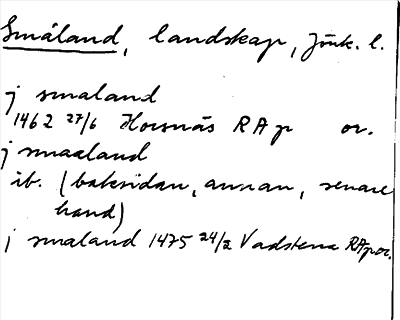 Småland, landskap, Jönk. l.
j smaland
1462 27/6 Hovsnäs RAp or.
j smaaland
ib. (baksidan, annan, senare
hand)
j smaland 1475 24/2 Vadstena RAp or.